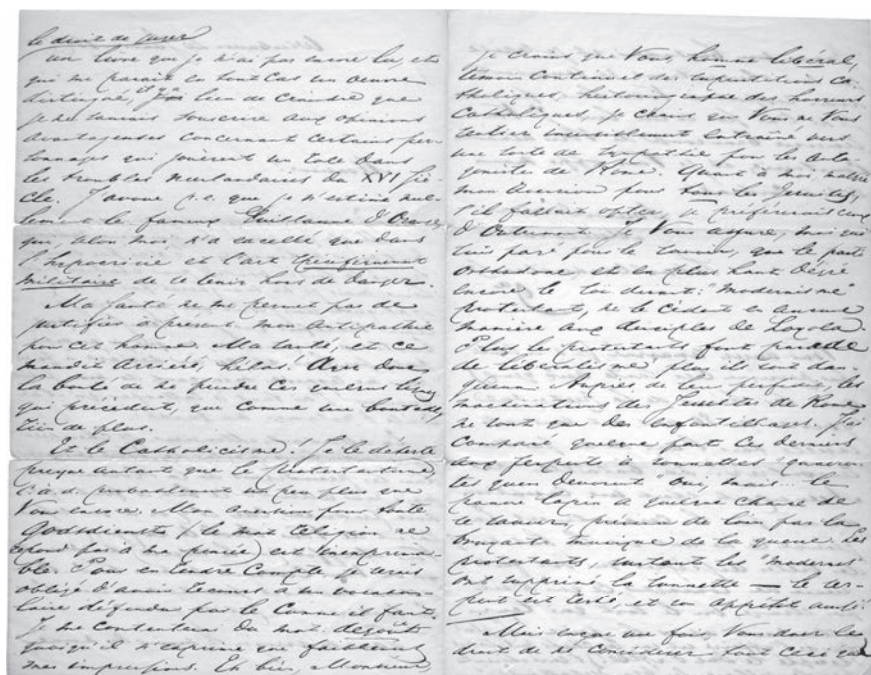 le droit de juger
un livre que je n'ai pas encore lu, et
qui me paraît en tout cas un œuvre
distingué, il y a lieu de craindre que
je ne saurais souscrire aux opinions
avantageuses concernant certains per-
sonnages qui jouèrent un role dans
les troubles neerlandaises du XVI siè-
cle. J'avoue p.e. que je n'estime nul-
lement le fameux Guillaume d'Orange,
qui, selon moi, n'a excellé que dans
l'hypocrisie et l'art
militaire de se tenir hors de danger.
Ma santé ne me permet pas de
justifier à present mon antipathie
pour cet homme. Ma santé, et ce
maudit arriéré, hélas! Ayez donc
la bonté de ne prendre ces quelques lignes
qui précèdent, que comme une boutade,
rien de plus.
Et le Catholicisme! Je le déteste
presque autant que le protestantisme,
c.à.d. probablement un peu plus que
Vous encore. Mon aversion pour toute
Godsdienst (le mot religion ne
répond pas à ma pensée) est inexprima-
ble. Pour en rendre compte je serais
obligé d'avoir recours à un vocabu-
laire défendu par le comme il faut.
Je me contenterai du mot dégoût
quoiqu'il n'exprime que faiblement
mes impressions. Eh bien, Monsieur,
je crains que Vous, homme libéral,
temoin continuel des turpitudes ca-
tholiques, historiographe des horreurs
Catholiques, je crains que Vous ne Vous
sentiez insensiblement entrainé vers
une sorte de sympathie pour les anta-
gonistes de Rome. Quant à moi, malgré
mon aversion pour tous les Jesuites,
s'il fallait opter, je préférerais ceux
d'Outremont. Je Vous assure, moi qui
suis payé pour le savoir, que le parti
orthodoxe, et en plus haut degré
encore le soi disant: "modernisme"
protestant, ne le cèdent en aucune
manière aux disciples de Loyola.
Plus les protestants font parade
de liberalisme plus ils sont dan-
gereux. Auprès de leur perfidie, les
machinations des Jesuites de Rome
ne sont que des enfantillages. J'ai
comparé quelque part ces derniers
aux serpents à sonnettes. "Quaerens
quem devoret" oui, mais... le
pauvre lapin a quelque chance de
se sauver, prévenu de loin par la
bruyante musique de la queue. Les
protestants, surtout les "modernes"
ont supprimé la sonnette — le ser-
pent est resté, et son appétit aussi!
Mais encore une fois, Vous avez le
droit de ne considerer tout ceci que